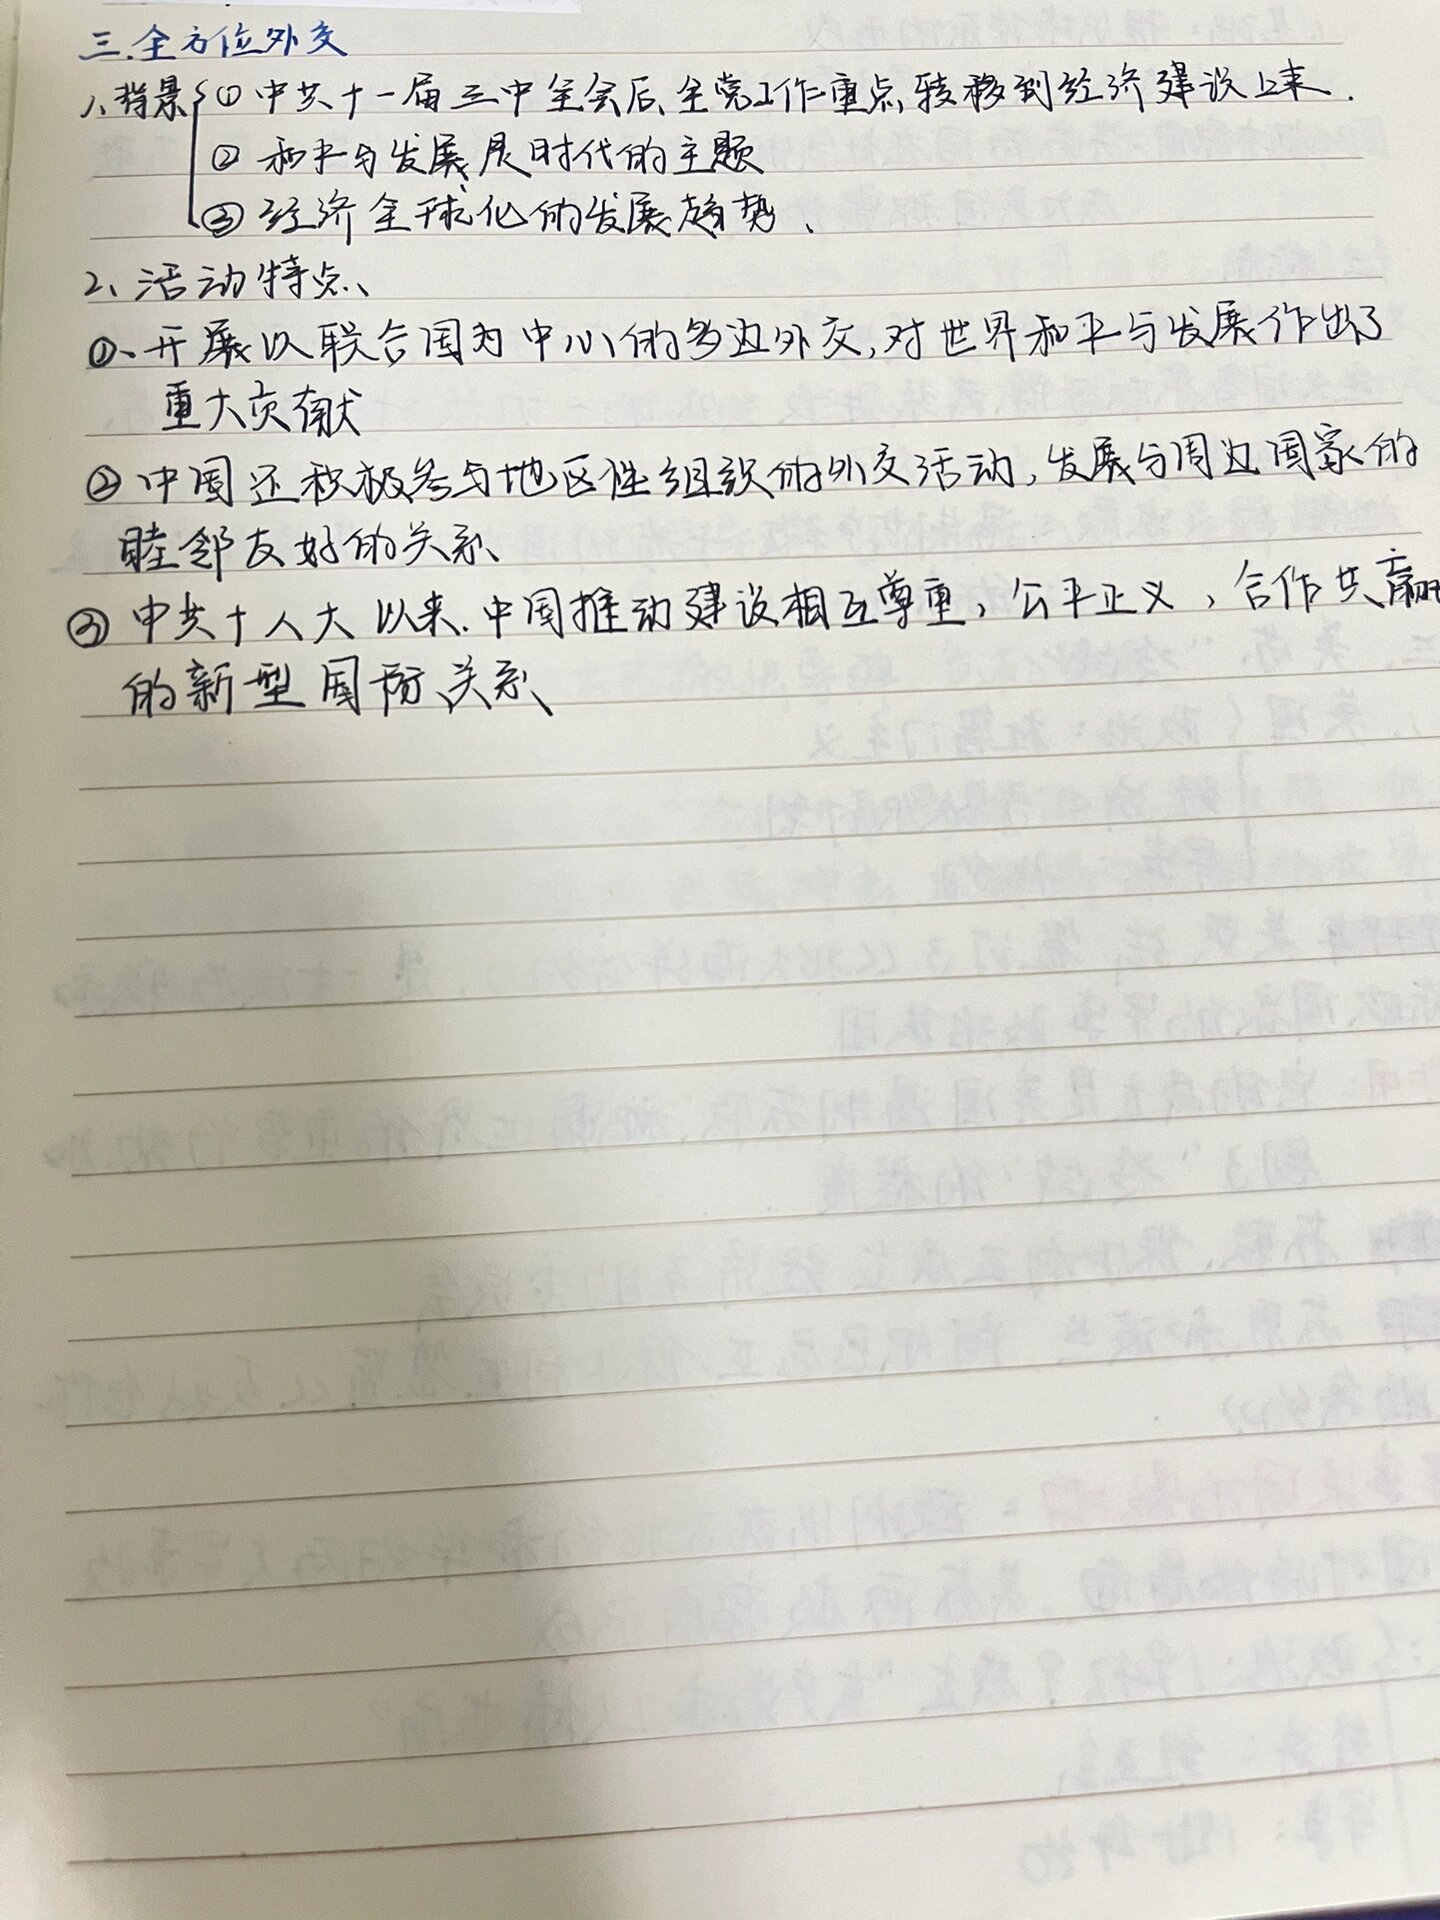 三.全方位外交
1、背景 ① 中共十一届三中全会后,全党工作重点,转移到经济建设上来.
② 和平与发展是时代的主题
③ 经济全球化的发展趋势、
2、活动特点、
①、开展以联合国为中心的多边外交,对世界和平与发展作出了
重大贡献
② 中国还积极参与地区性组织的外交活动,发展与周边国家的
睦邻友好的关系、
③ 中共十八大以来.中国推动建设相互尊重,公平正义,合作共赢
的新型国际关系、